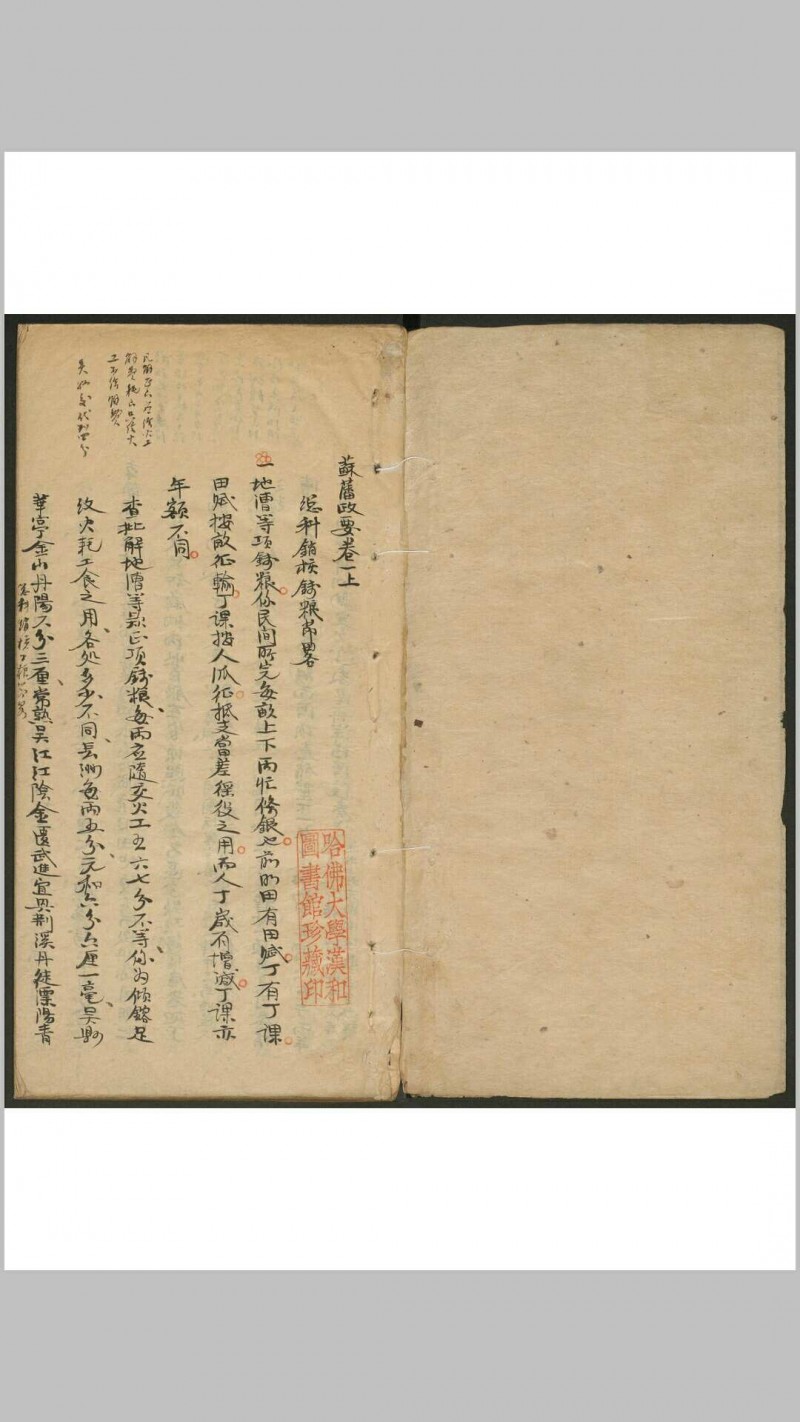 蘇藩政要卷一上
總科銷核錢粮常畧
一地漕等項錢粮係民間所完每畝上下兩忙條銀也前明田有田賦丁有丁課
田賦按畝征輸丁課按人派征抵支當差徭役之用而人丁歲有增減丁課亦
年額不同
查批解地漕等款正項錢粮每兩應隨交火工五六七分不等係為傾鎔足
紋火耗工食之用各処多少不同長洲每兩五分元和六分六厘一毫吳縣
華亭金山丹陽六分三厘常熟吳江江陰金匱武進宜興荊溪丹徒溧陽青
哈佛大學漢和
圖書館珍藏印